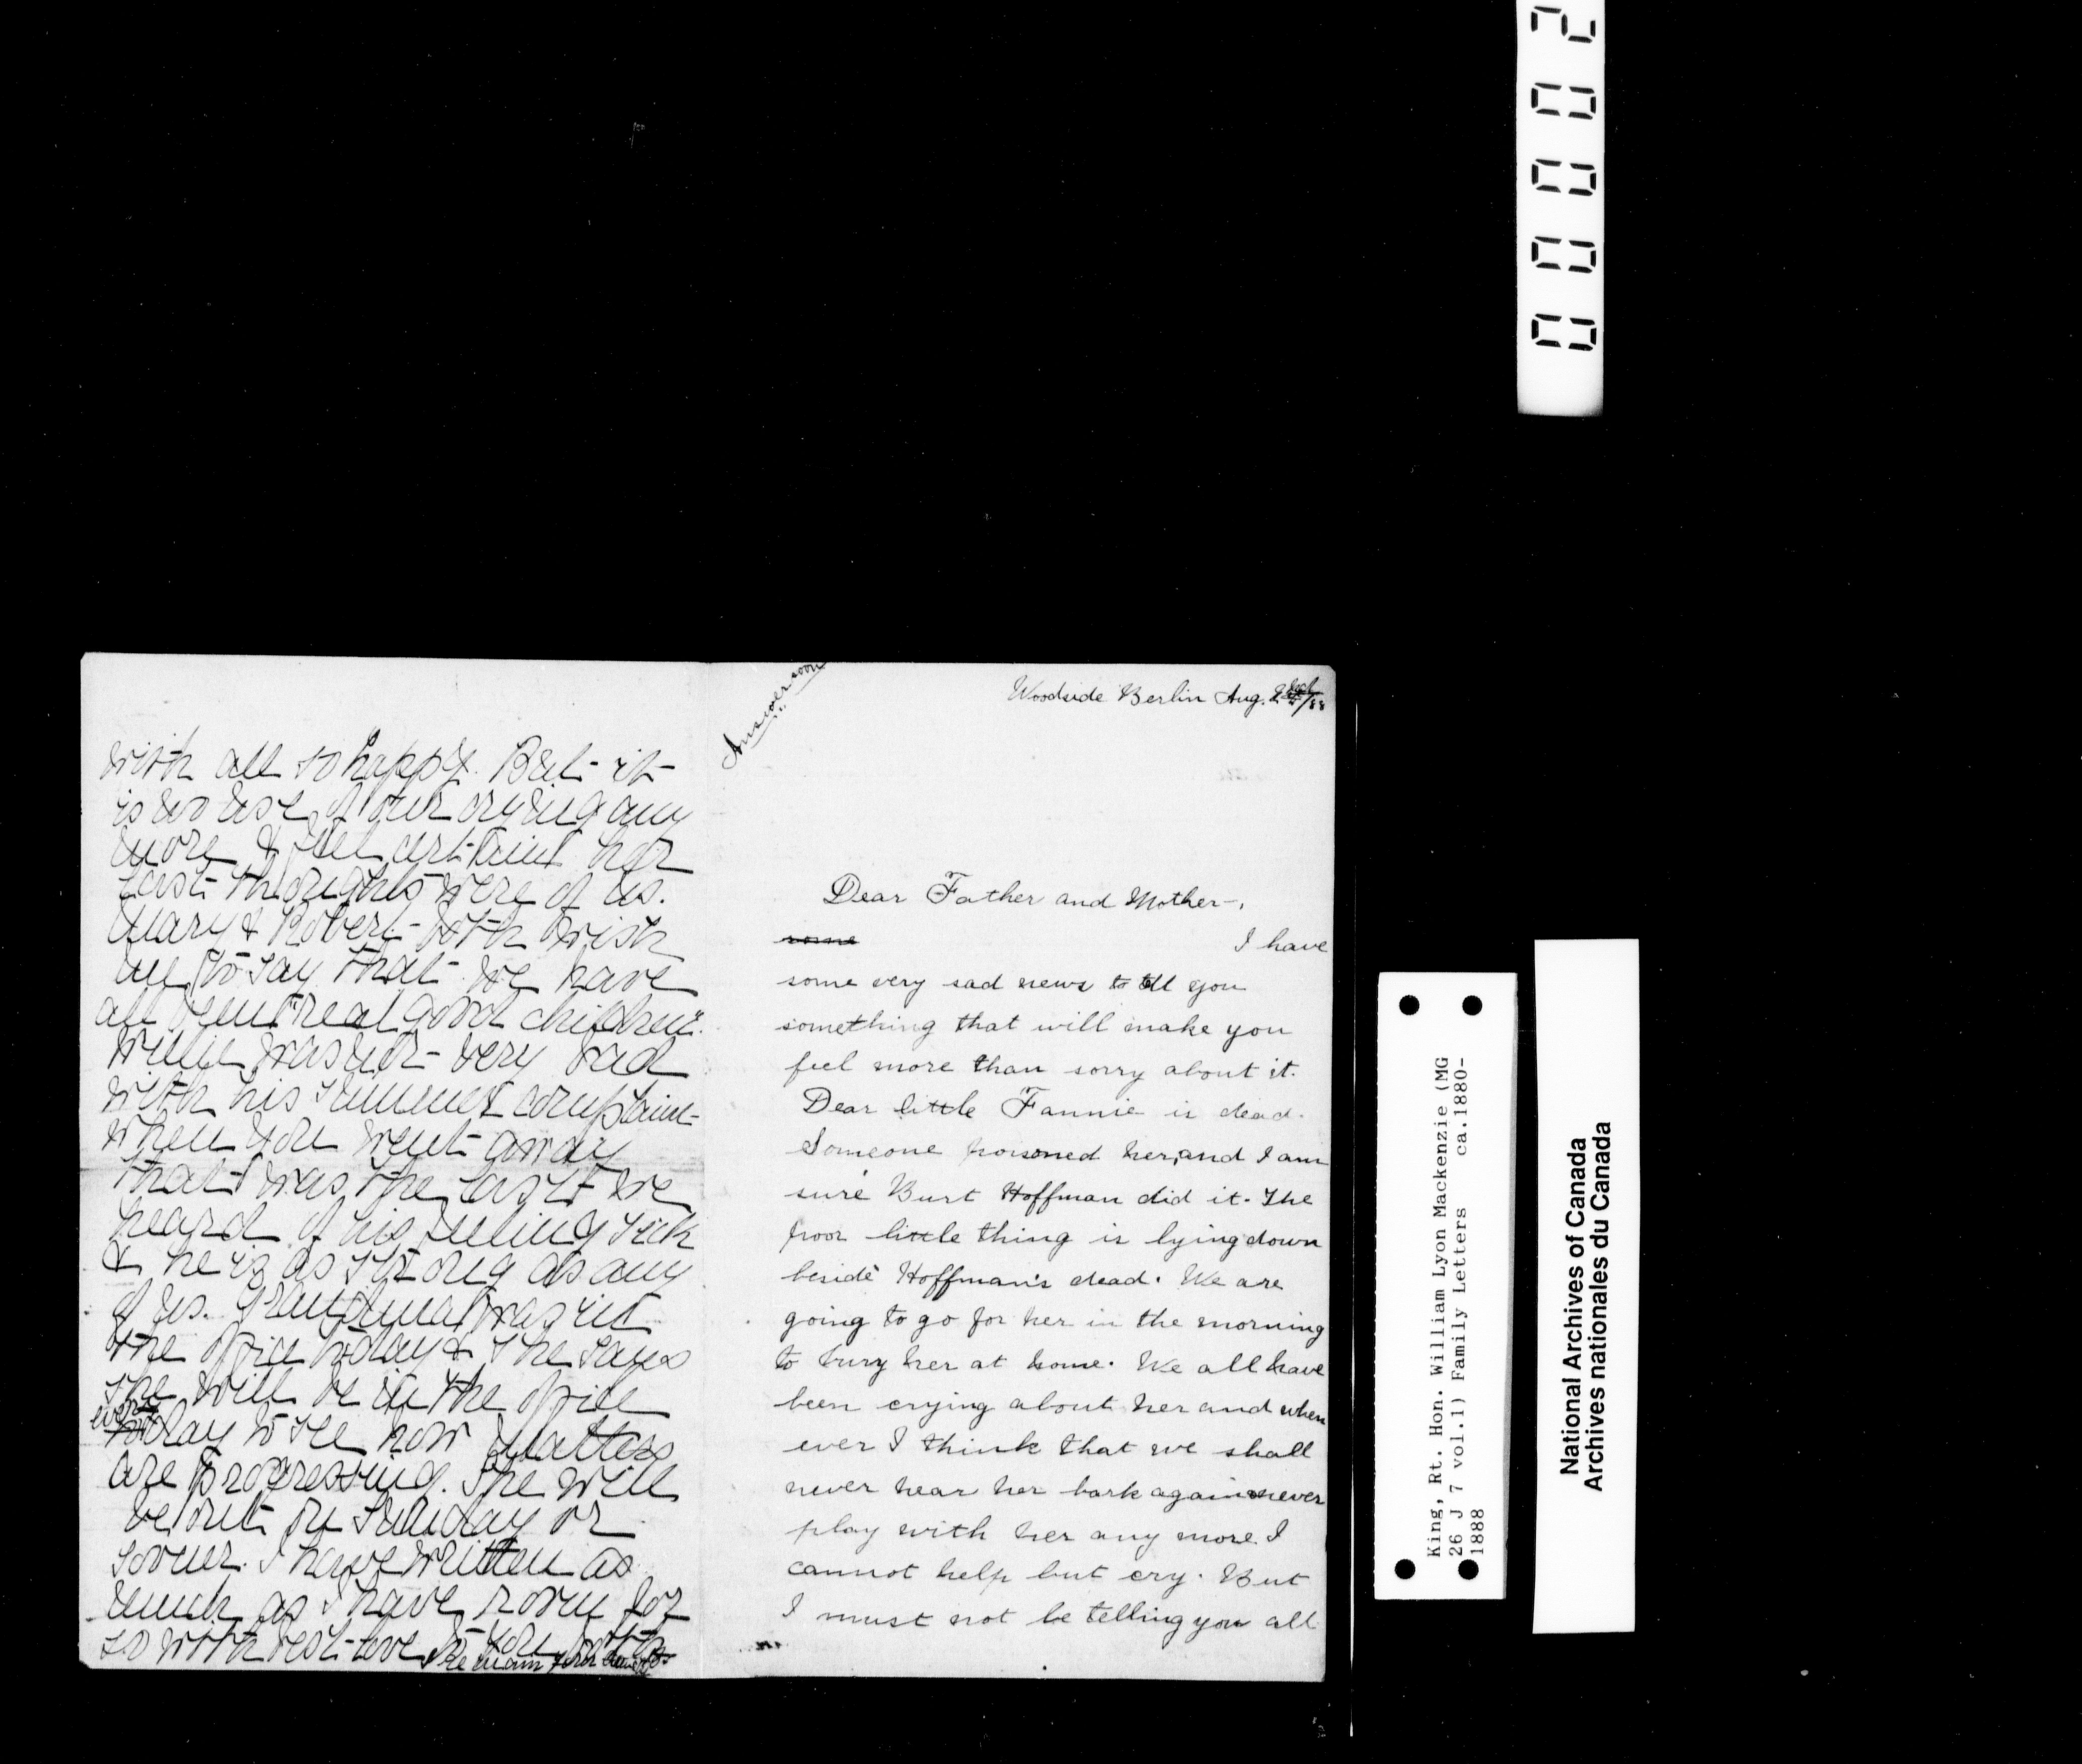 with all so happy. But it
is no use of our crying any
more I feel certaint her
last thoughts were of us.
Mary & Robert both wish
me to say that we have
all been "real good children".
Willie was not very bad
with his summer complaint
when you went away
that was the last we
heard of his feeling sick
& he is as strong as any
of us. Grandmama was in
the office today & she says
she will be in the office
every
day to see how matters
are progressing. She will
be out on Sunday or
sooner. I have written as
much as I have room for
so with best love to you both
I remain your
Answer soon
Woodside Berlin Aug. /88
Dear Father and Mother-,
some I have
some very sad news to tell you
something that will make you
feel more than sorry about it.
Dear little Fannie is dead.
Someone poisoned her, and I am
sure Burt Hoffman did it. The
poor little thing is lying down
beside Hoffman's dead. We are
going to go for her in the morning
to bury her at home. We all have
been crying about her and when
ever I think that we shall
never hear her bark again never
play with her any more I
cannot help but cry. But
I must not be telling you all
00002
King, Rt. Hon. William Lyon Mackenzie (MG
26 J 7 vol.1) Family Letters ca.1880-
1888
National Archives of Canada
Archives nationales du Canada